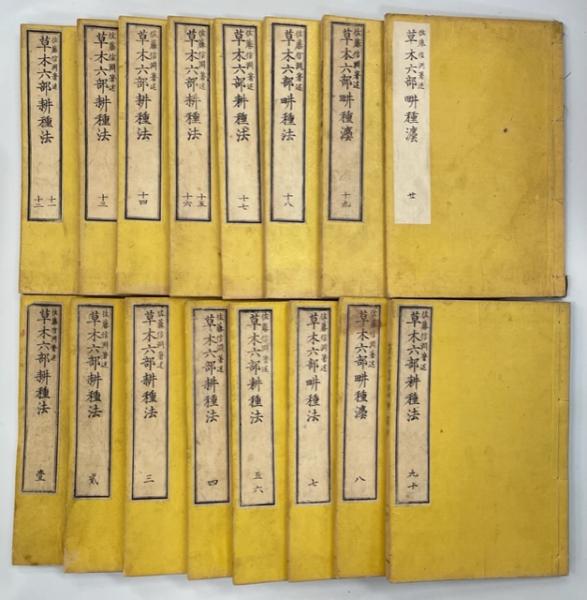 佐藤信淵著述
草木六部耕種法
十一
十二
佐藤信淵著述
草木六部耕種法
十三
佐藤信淵著述
草木六部耕種法
十四
佐藤信淵著述
草木六部耕種法
十五
十六
佐藤信淵著述
草木六部耕種法
十七
佐藤信淵著述
草木六部畊種法
十八
佐藤信淵著述
草木六部畊種灋
十九
佐藤信淵著述
草木六部畊種灋
廿
佐藤信淵著述
草木六部耕種法
壹
佐藤信淵著述
草木六部耕種法
貳
佐藤信淵著述
草木六部耕種法
三
佐藤信淵著述
草木六部耕種法
四
佐藤信淵著述
草木六部耕種法
五六
佐藤信淵著述
草木六部畊種法
七
佐藤信淵著述
草木六部畊種灋
八
佐藤信淵著述
草木六部耕種法
九十